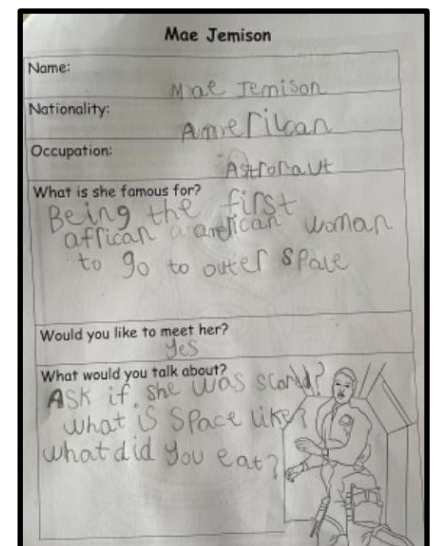 Mae Jemison
Name:
Mae Jemison
Nationality:
Amerilcan
Occupation:
Astronaut
What is she famous for?
Being the first
african american woman
to go to outer space
Would you like to meet her?
yes
What would you talk about?
Ask if she was scard?
what is space like?
what did you eat?